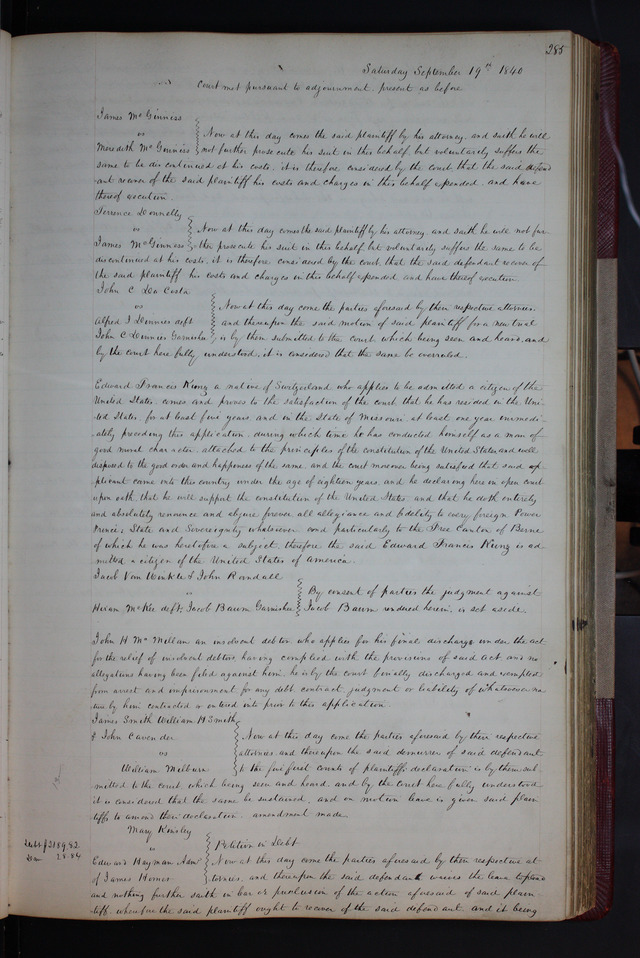 285
Saturday September 19th 1840
Court met pursuant to adjournment. present as before
James McGinniss
vs
Meredith McGinniss
Now at this day comes the said plaintiff by his attorney, and saith he will
not further prosecute his suit in this behalf but voluntarily suffers the
same to be discontinued at his costs. it is therefore considered by the court that the said defend
ant recover of the said plaintiff his costs and charges in this behalf expended and have
thereof execution.
Terrence Donnelly
vs
James McGinniss
Now at this day comes the said plaintiff by his attorney, and saith he will not fur
ther prosecute his suit in this behalf but voluntarily suffers the same to be
discontinued at his costs, it is therefore considered by the court, that the said defendant recover of
the said plaintiff his costs and charges in this behalf expended and have thereof execution.
John C Da Costa
vs
Alfred J Dennies deft
John C Dennies Garnishee
Now at this day come the parties aforesaid by their respective attornies,
and thereupon the said motion of said plaintiff for a new trial
is by them submitted to the court which being seen and heard, and
by the court here fully understood, it is considered that the same be overruled.
Edward Francis Kung a native of Switzerland who applies to be admitted a citizen of the
United States. comes and proves to the satisfaction of the court that he has resided in the Uni
ted States, for at least five years, and in the State of Missouri, at least one year immedi
ately preceding this application, during which time he has conducted himself as a man of
good moral character, attached to the principles of the constitution of the United States and well
disposed to the good order and happiness of the same, and the court moreover being satisfied that said ap
plicant came into this country under the age of eighteen years, and he declaring here in open court
upon oath, that he will support the constitution of the United States and that he doth entirely
and absolutely renounce and abjure forever all allegiance and fidelity to every foreign Power
Prince, State and Sovereignty whatsoever and particularly to the Free Canton of Berne
of which he was heretofore a subject. therefore the said Edward Francis Kung is ad
mitted a citizen of the United States of America.
Jacob Van Winkle & John Randall
vs
Hiram McKee deft, Jacob Baum Garnishee
By consent of parties the judgment against
Jacob Baum rendered herein, is set aside.
John H McMillan an insolvent debtor who applies for his final discharge under the act
for the relief of insolvent debtors having complied with the provisions of said act and no
allegations having been filed against him. he is by the court finally discharged and exempted
from arrest and imprisonment for any debt contract, judgment or liability of whatsoever na
ture by him contracted or entered into prior to this application.
James Smith William H Smith
& John Cavender
vs
William Milburn
Now at this day come the parties aforesaid by their respective
attornies, and thereupon the said demurrer of said defendant
to the five first counts of plaintiffs declaration is by them sub-
mitted to the court, which being seen and heard, and by the court here fully understood
it is considered that the same be sustained, and on motion leave is given said plain
tiffs to amend their declaration. amendment made.
Mary Kinsley
vs
Edward Hayman Admr
of James Homer
Debt $3189.82
Dam 28.84
Petition in Debt
Now at this day come the parties aforesaid by their respective at
tornies, and thereupon the said defendant waives the leave to plead
and nothing further saith in bar or preclusion of the action aforesaid of said plain
tiff. wherefore the said plaintiff ought to recover of the said defendant and it being